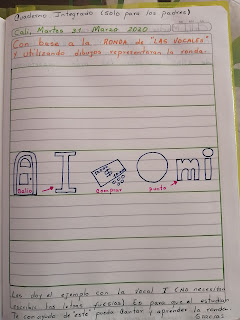 Cuaderno Integrado (Solo para los padres)
Cali, Martes 31 Marzo 2020
Con base a la RONDA de "LAS VOCALES"
y utilizando dibujos representaran la ronda.
Salio I Comprar punto mi
Les doy el ejemplo con la vocal I (No necesitan
escribir las letras) Es para que el estudiante
con ayuda de "este" pueda cantar y aprender la ronda.
Gracias